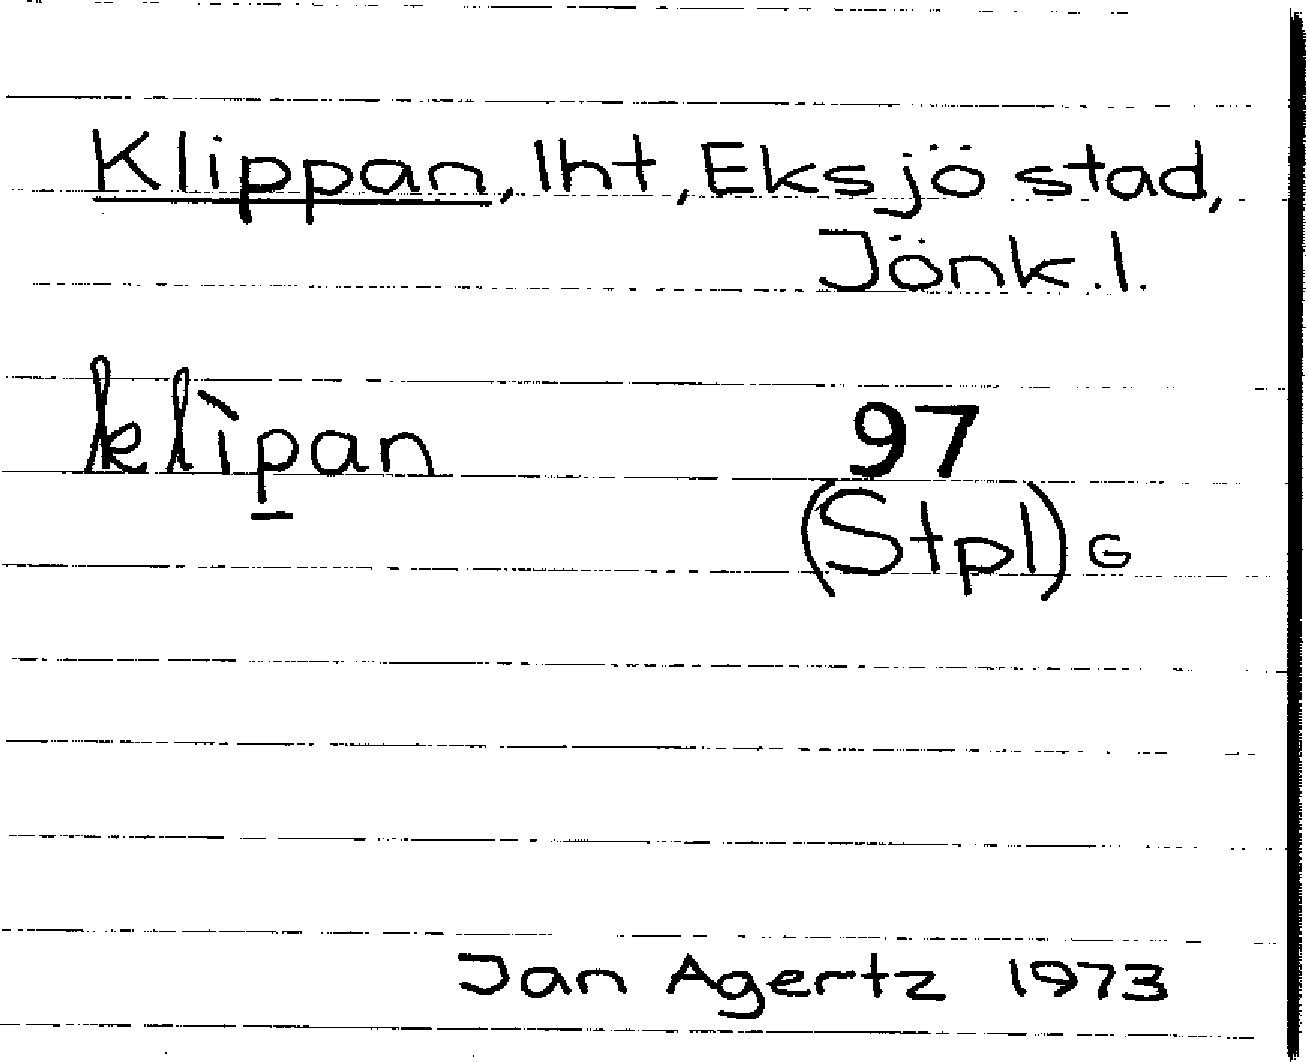 Klippan, lht, Eksjö stad,
Jönk.l.
klìp̱an 97
(Stpl) G
Jan Agertz 1973